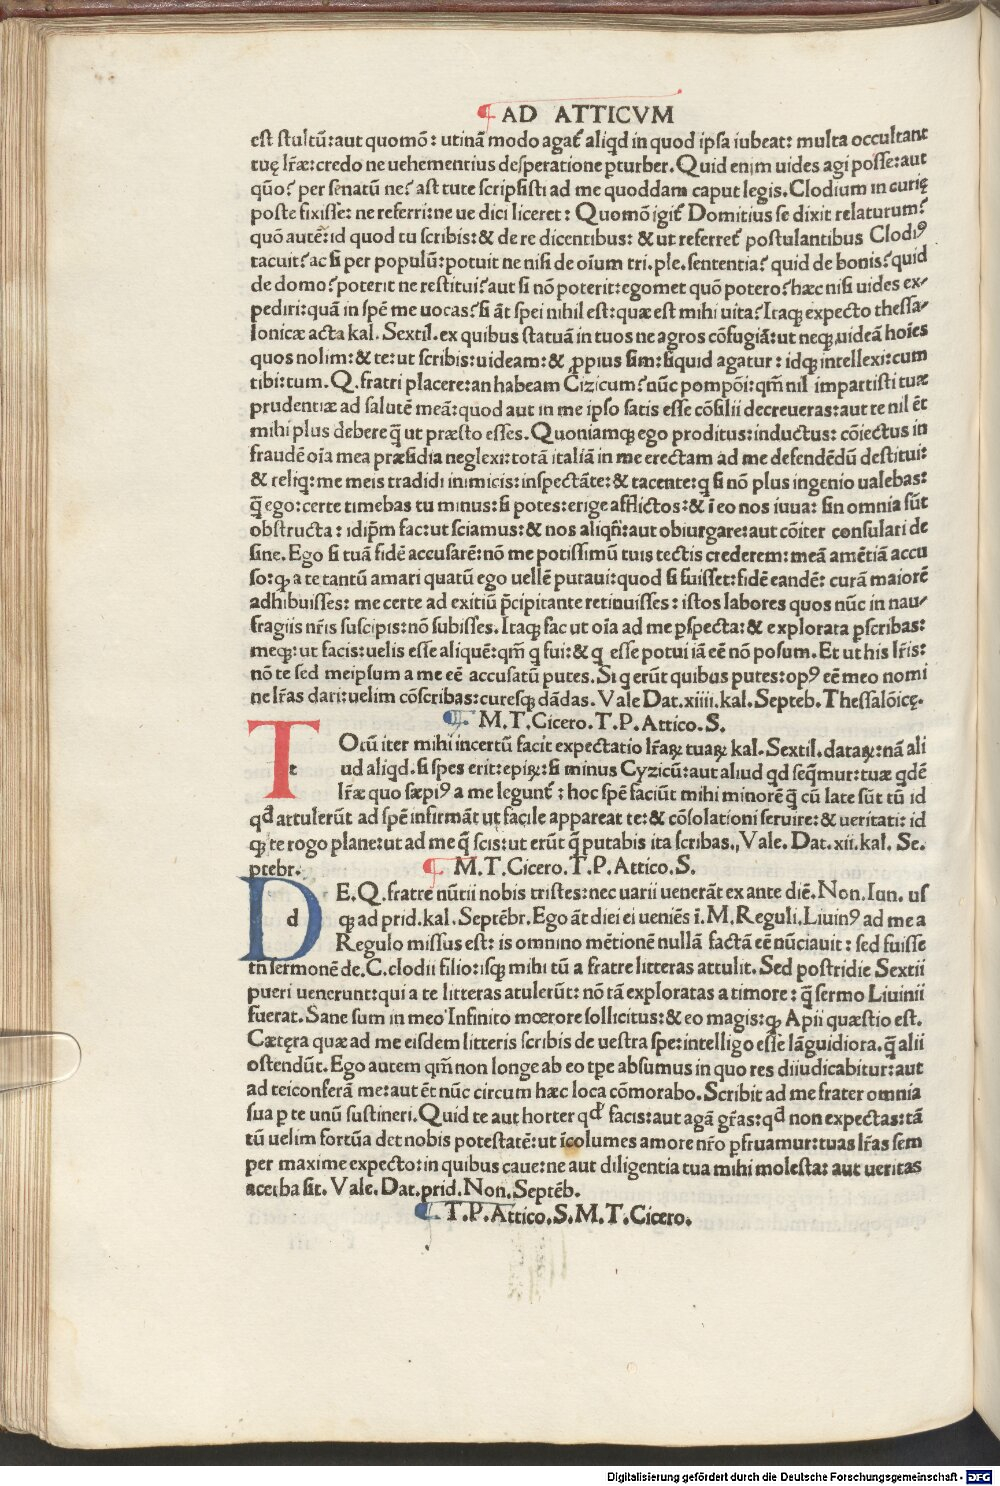 AD ATTICVM
est stultū: aut quomō: utinā modo agat᷑ aliqd in quod ipsa iubeat: multa occultant
tuę lr̄æ: credo ne uehementius desperatione ꝑturber. Quid enim uides agi posse: aut
qūo? per senatū ne? ast tute scripsisti ad me quoddam caput legis. Clodium in curię
poste fixisse: ne referri: ne ue dici liceret: Quomō igit᷑ Domitius se dixit relaturum?
quō autē: id quod tu scribis: & de re dicentibus: & ut referret᷑ postulantibus Clodiꝰ
tacuit? ac si per populū: potuit ne nisi de oīum tri. ple. sententia? quid de bonis? quid
de domo? poterit ne restitui? aut si nō poterit: egomet quō potero? hæc nisi uides ex/
pediri: quā in spē me uocas? si āt spei nihil est: quæ est mihi uita? Itaqꝫ expecto thessa/
lonicæ acta kal. Sextil. ex quibus statuā in tuos ne agros cōfugiā: ut neqꝫ uideā hoīes
quos nolim: & te: ut scribis: uideam: & ꝓpius sim: siquid agatur: idqꝫ intellexi: cum
tibi: tum. Q. fratri placere: an habeam Cizicum? nūc pompōi: qm̄ nil impartisti tuæ
prudentiæ ad salutē meā: quod aut in me ipso satis esse cōsilii decreueras: aut te nil ēt
mihi plus debere q̄ ut præsto esses. Quoniamqꝫ ego proditus: inductus: cōiectus in
fraudē oīa mea præsidia neglexi: totā italiā in me erectam ad me defendēdū destitui:
& reliq: me meis tradidi inimicis: inspectāte: & tacente: q si nō plus ingenio ualebas:
q̄ ego: certe timebas tu minus: si potes: erige afflictos: & ī eo nos iuua: sin omnia sūt
obstructa: idip̄m fac: ut sciamus: & nos aliqn̄: aut obiurgare: aut cōiter consulari de
sine. Ego si tuā fidē accusarē: nō me potissimū tuis tectis crederem: meā amētiā accu
so: qꝫ a te tantū amari quatū ego uellē putaui: quod si fuisset: fidē eandē: curā maiorē
adhibuisses: me certe ad exitiū p̄cipitante retinuisses: istos labores quos nūc in nau/
fragiis nr̄is suscipis: nō subisses. Itaqꝫ fac ut oīa ad me ꝑspecta: & explorata ꝑscribas:
meqꝫ: ut facis: uelis esse aliquē: qm̄ q fui: & q esse potui iā eē nō possum. Et ut his lr̄is:
nō te sed meipsum a me eē accusatū putes. Si q erūt quibus putes: opꝰ eē meo nomi
ne lr̄as dari: uelim cōscribas: curesqꝫ dādas. Vale Dat. xiiii. kal. Septeb. Thessalōicę.
M. T. Cicero. T. P. Attico. S.
T
t
Otū iter mihi incertū facit expectatio lr̄aꝝ tuaꝝ kal. Sextil. dataꝝ: nā ali
ud aliqd. si spes erit: epiꝝ: si minus Cyzicū: aut aliud qd seq̄mur: tuæ qdē
lr̄æ quo sæpiꝰ a me legunt᷑: hoc spē faciūt mihi minorē q̄ cū late sūt tū id
qd attulerūt ad spē infirmāt ut facile appareat te: & cōsolationi seruire: & ueritati: id
qꝫ te rogo plane: ut ad me q̄ scis: ut erūt q̄ putabis ita scribas., Vale. Dat. xii. kal. Se.
ptebr.
M. T. Cicero. T. P. Attico. S.
D
d
E. Q. fratre nūtii nobis tristes: nec uarii uenerāt ex ante diē. Non. Iun. us
qꝫ ad prid. kal. Septēbr. Ego āt diei ei ueniēs ī. M. Reguli. Liuinꝰ ad me a
Regulo missus est: is omnino mētionē nullā factā eē nūciauit: sed fuisse
tn̄ sermonē de. C. clodii filio: isqꝫ mihi tū a fratre litteras attulit. Sed postridie Sextii
pueri uenerunt: qui a te litteras atulerūt: nō tā exploratas a timore: q̄ sermo Liuinii
fuerat. Sane sum in meo Infinito mœrore sollicitus: & eo magis: qꝫ Apii quæstio est.
Cætęra quæ ad me eisdem litteris scribis de uestra spe: intelligo esse lāguidiora. q̄ alii
ostendūt. Ego autem qm̄ non longe ab eo tꝑe absumus in quo res diiudicabitur: aut
ad te iconferā me: aut ēt nūc circum hæc loca cōmorabo. Scribit ad me frater omnia
sua ꝑ te unū sustineri. Quid te aut horter qd facis: aut agā gr̄as: qd non expectas: tā
tū uelim fortūa det nobis potestatē: ut īcolumes amore nr̄o ꝑfruamur: tuas lr̄as sem
per maxime expecto: in quibus caue: ne aut diligentia tua mihi molesta: aut ueritas
acerba sit. Vale. Dat. prid. Non. Septēb.
T. P. Attico. S. M. T. Cicero.
Digitalisierung gefördert durch die Deutsche Forschungsgemeinschaft - DFG